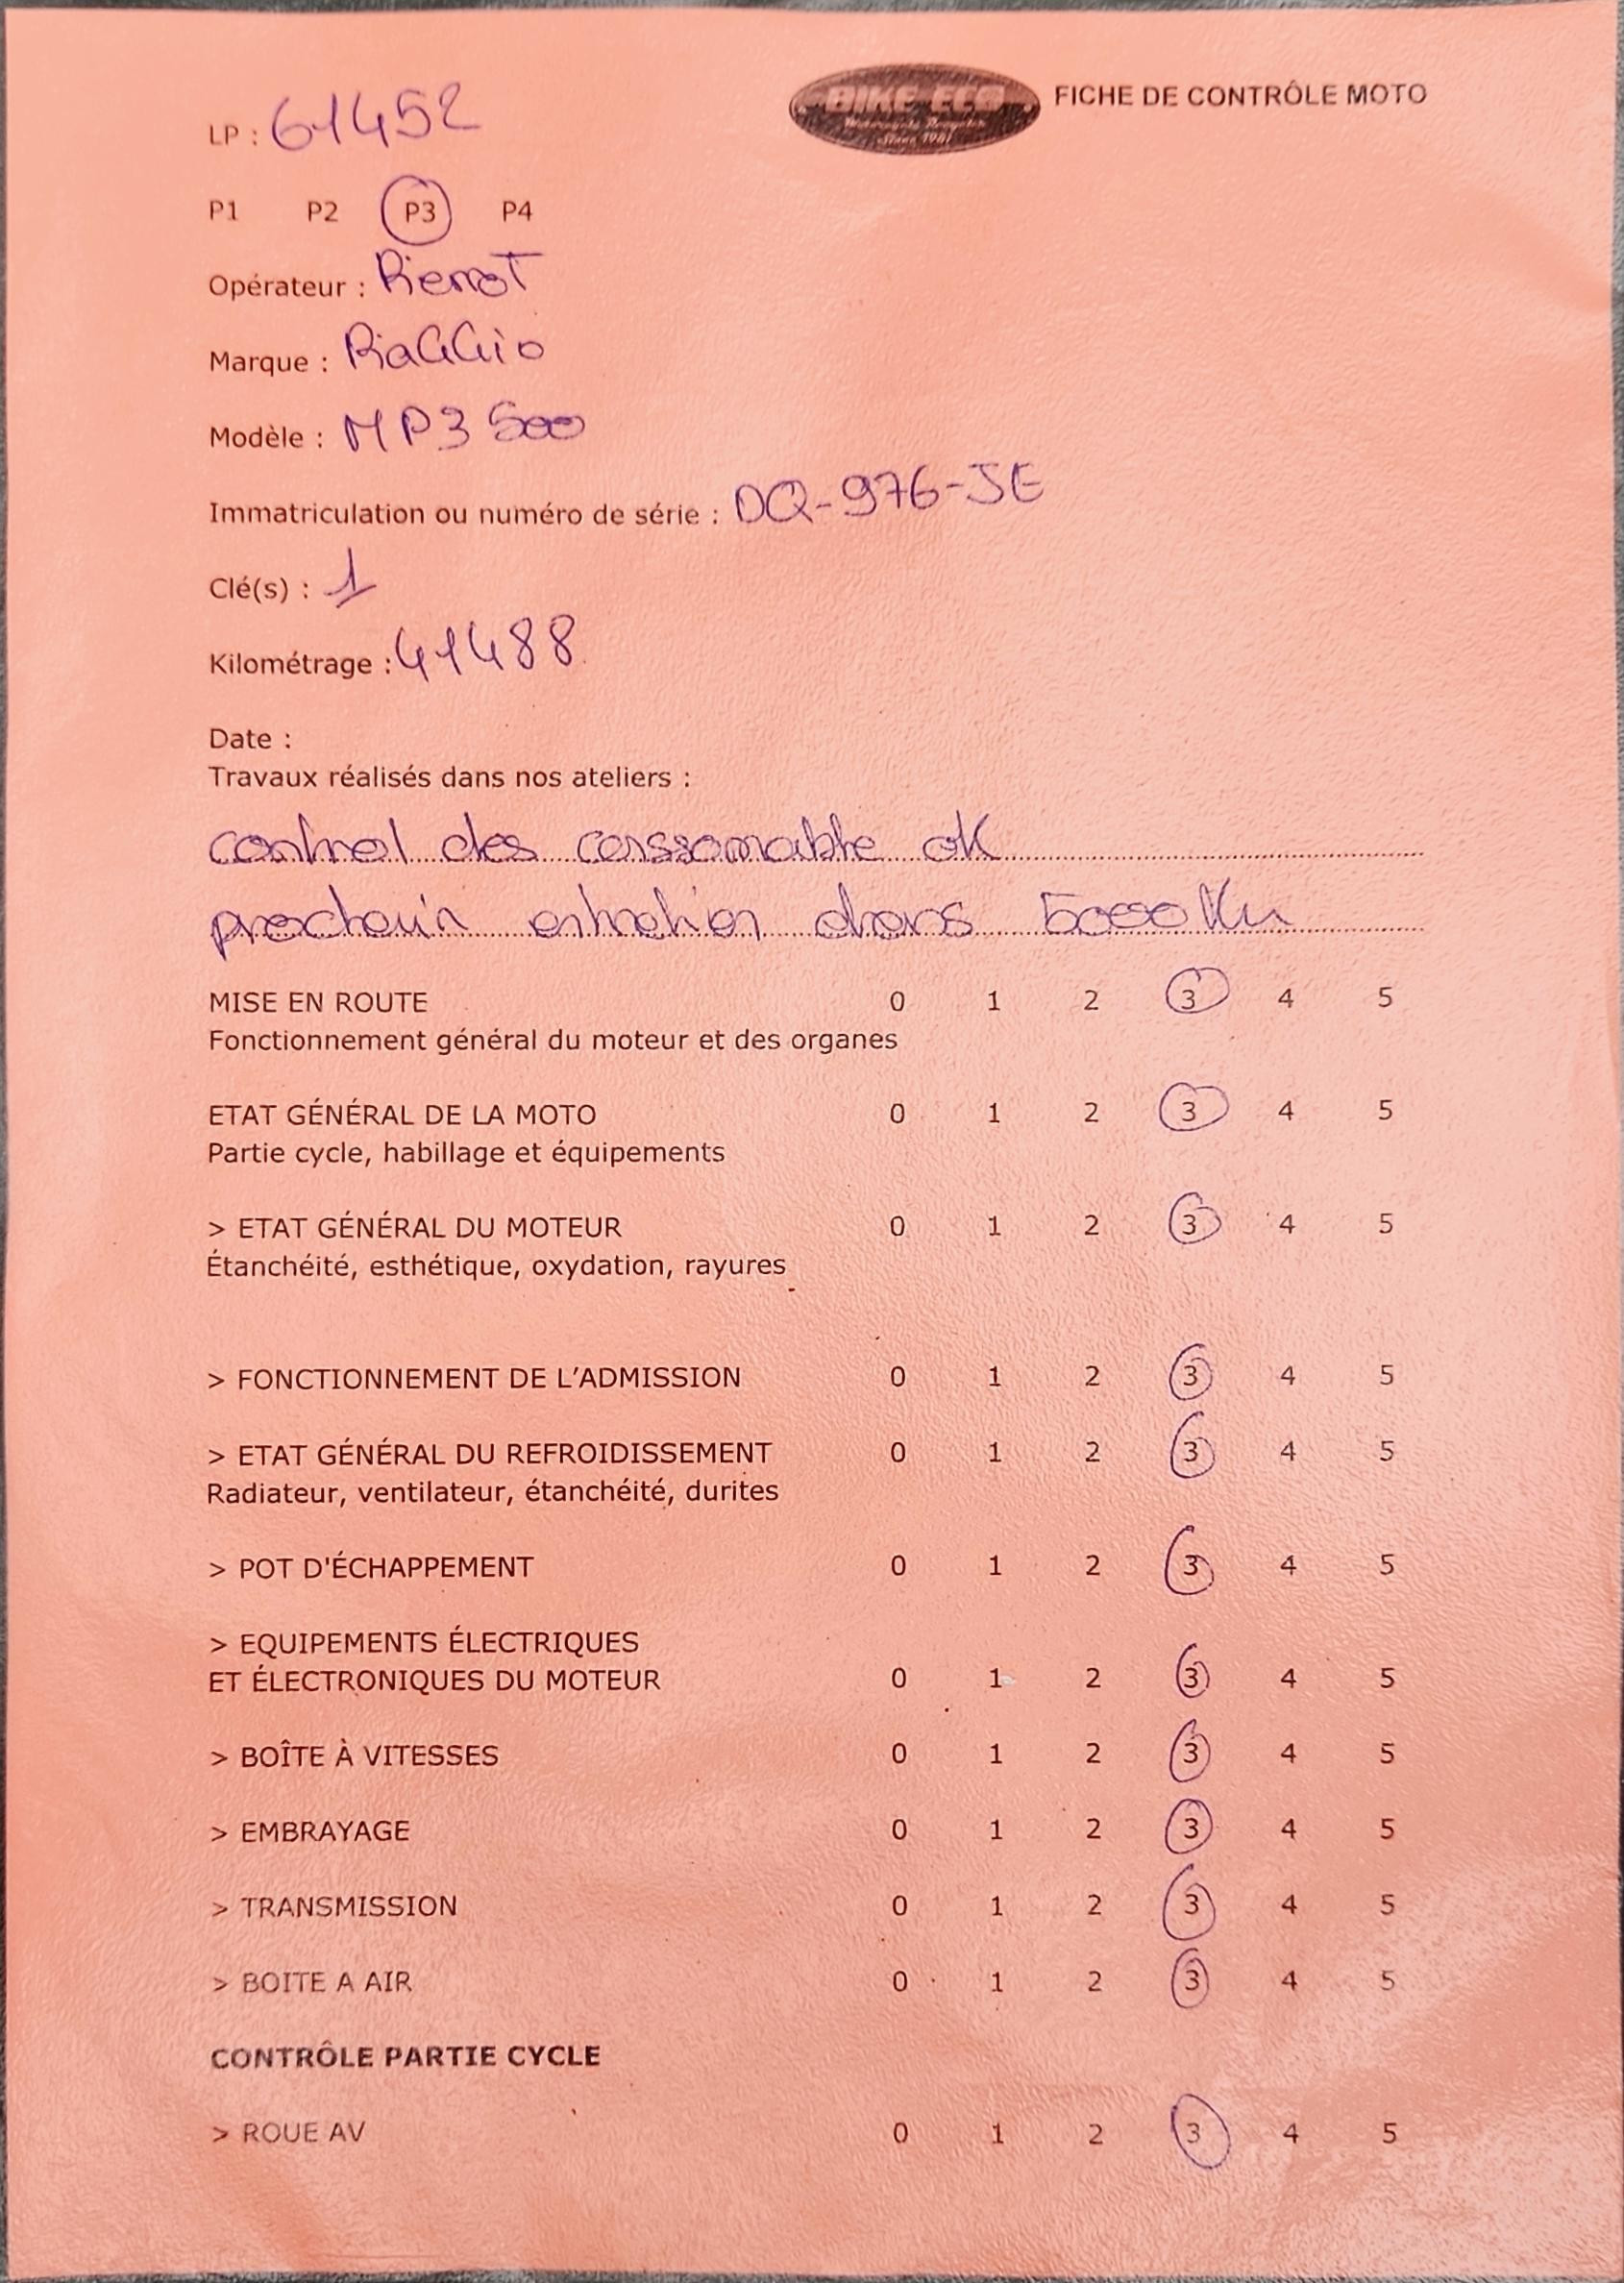 BIKE ECS FICHE DE CONTRÔLE MOTO
Since 1981
LP : 61452
P1 P2 P3 P4
Opérateur : Pierrot
Marque : PiaGGio
Modèle : MP3 500
Immatriculation ou numéro de série : DQ-976-JE
Clé(s) : 1
Kilométrage : 41488
Date :
Travaux réalisés dans nos ateliers :
control des conssomable ok
prochain entretien dans 5000 Km
MISE EN ROUTE 0 1 2 3 4 5
Fonctionnement général du moteur et des organes
ETAT GÉNÉRAL DE LA MOTO 0 1 2 3 4 5
Partie cycle, habillage et équipements
> ETAT GÉNÉRAL DU MOTEUR 0 1 2 3 4 5
Étanchéité, esthétique, oxydation, rayures
> FONCTIONNEMENT DE L'ADMISSION 0 1 2 3 4 5
> ETAT GÉNÉRAL DU REFROIDISSEMENT 0 1 2 3 4 5
Radiateur, ventilateur, étanchéité, durites
> POT D'ÉCHAPPEMENT 0 1 2 3 4 5
> EQUIPEMENTS ÉLECTRIQUES
ET ÉLECTRONIQUES DU MOTEUR 0 1 2 3 4 5
> BOÎTE À VITESSES 0 1 2 3 4 5
> EMBRAYAGE 0 1 2 3 4 5
> TRANSMISSION 0 1 2 3 4 5
> BOITE A AIR 0 1 2 3 4 5
CONTRÔLE PARTIE CYCLE
> ROUE AV 0 1 2 3 4 5